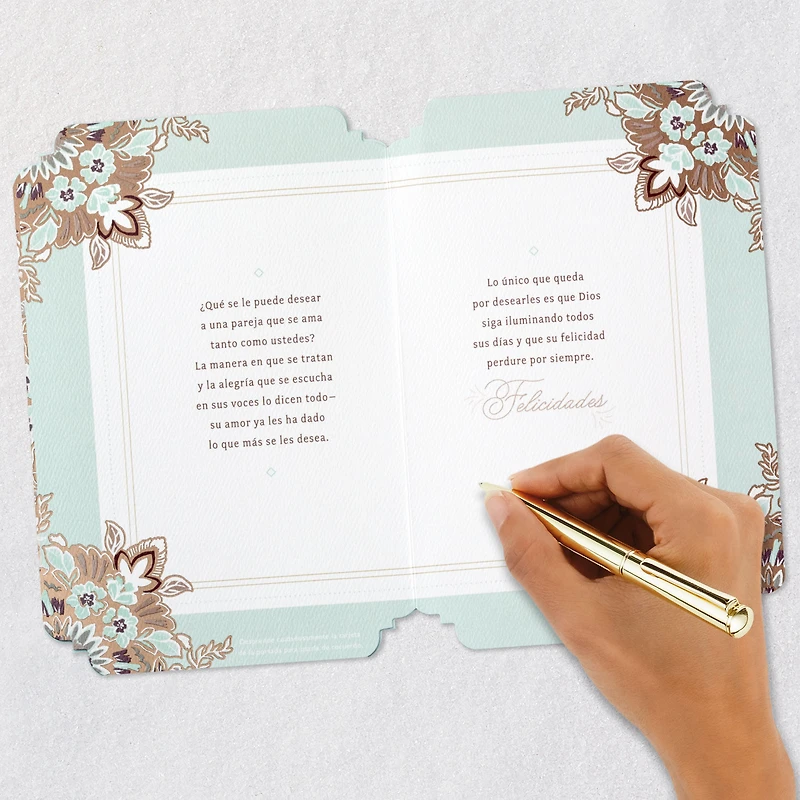 ¿Qué se le puede desear
a una pareja que se ama
tanto como ustedes?
La manera en que se tratan
y la alegría que se escucha
en sus voces lo dicen todo—
su amor ya les ha dado
lo que más se les desea.
Lo único que queda
por desearles es que Dios
siga iluminando todos
sus días y que su felicidad
perdure por siempre.
Felicidades